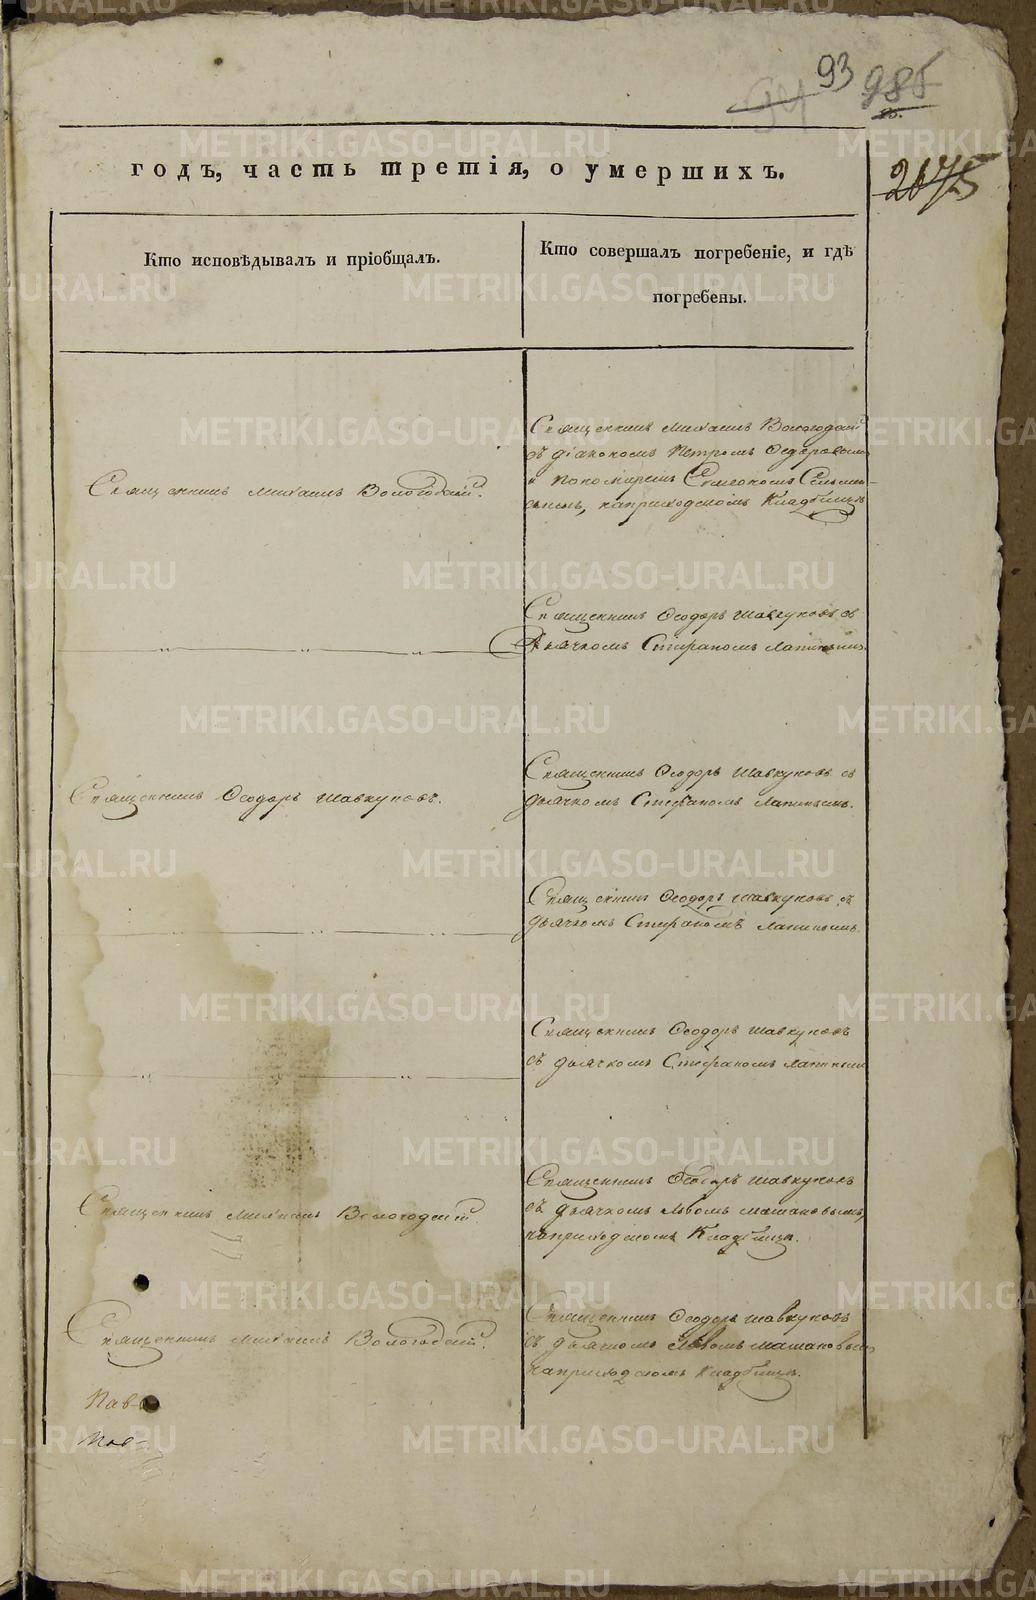 93 985
94
2675
годъ, часть третія, о умершихъ.
Кто исповѣдывалъ и пріобщалъ.
Кто совершалъ погребеніе, и гдѣ
погребены.
Священникъ Михаилъ Вологодскій.
Священникъ Михаилъ Вологодскій
съ діакономъ Петромъ Ѳедоровымъ
и пономаремъ Симеономъ
на приходскомъ кладбищѣ
Священникъ Ѳеодоръ Шавкуновъ съ
дьячкомъ Стефаномъ Лапинымъ.
Священникъ Ѳеодоръ Шавкуновъ.
Священникъ Ѳеодоръ Шавкуновъ съ
дьячкомъ Стефаномъ Лапинымъ.
Священникъ Ѳеодоръ Шавкуновъ съ
дьячкомъ Стефаномъ Лапинымъ.
Священникъ Ѳеодоръ Шавкуновъ
съ дьячкомъ Стефаномъ Лапинымъ
Священникъ Михаилъ Вологодскій.
Священникъ Ѳеодоръ Шавкуновъ
съ дьячкомъ Львомъ Мамановымъ,
на приходскомъ кладбищѣ.
Священникъ Михаилъ Вологодскій.
Священникъ Ѳеодоръ Шавкуновъ
съ дьячкомъ Львомъ Мамановымъ
на приходскомъ кладбищѣ.
METRIKI.GASO-URAL.RU